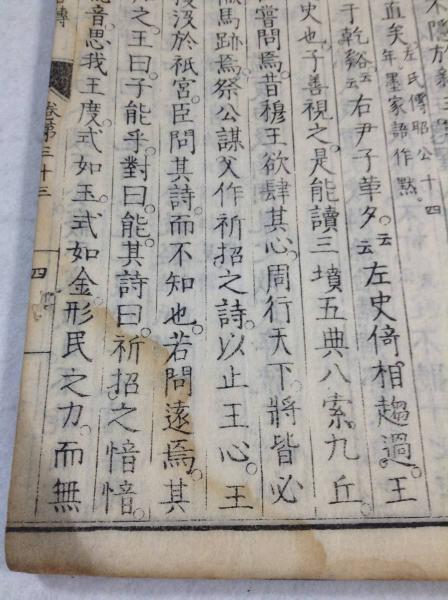 不隱於
直矣。左氏傳昭公十四年墨家語作黙
于乾谿云云右尹子革夕。云云左史倚相趨過。王
史也。子善視之。是能讀三墳五典八索。九丘。
嘗問焉。昔穆王欲肆其心。周行天下。將皆必
馬跡焉。祭公謀父作祈招之詩。以止王心。王
沒於祇宮。臣問其詩而不知也。若問遠焉。其
之。王曰。子能乎。對曰。能。其詩曰。祈招之愔愔。
音。思我王度。式如玉。式如金。形民之力。而無
卷第三十三 四